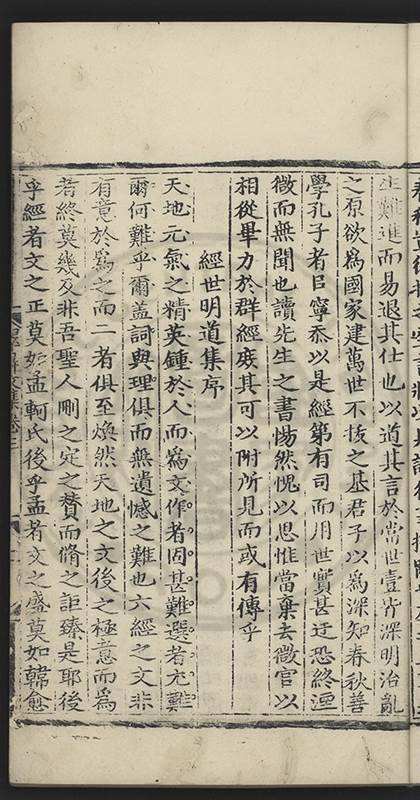 生難進而易退其仕也以道其言於當世壹皆深明治亂
之原欲為國家建萬世不拔之基君子以為深知春秋善
學孔子者臣寧忝以是經第有司而用世實甚迂恐終湮
微而無聞也讀先生之書惕然愧以思惟當棄去微官以
相從畢力於群經庶其可以附所見而或有傳乎
經世明道集序
天地元氣之精英鍾於人而為文作者固甚難選者尤難
爾何難乎爾蓋詞與理俱而無遺憾之難也六經之文非
有意於為之而二者俱至煥然天地之文後之極意而為
者終莫幾及非吾聖人刪之定之贊而脩之詎臻是耶後
乎經者文之正莫如孟軻氏後乎孟者文之盛莫如韓愈